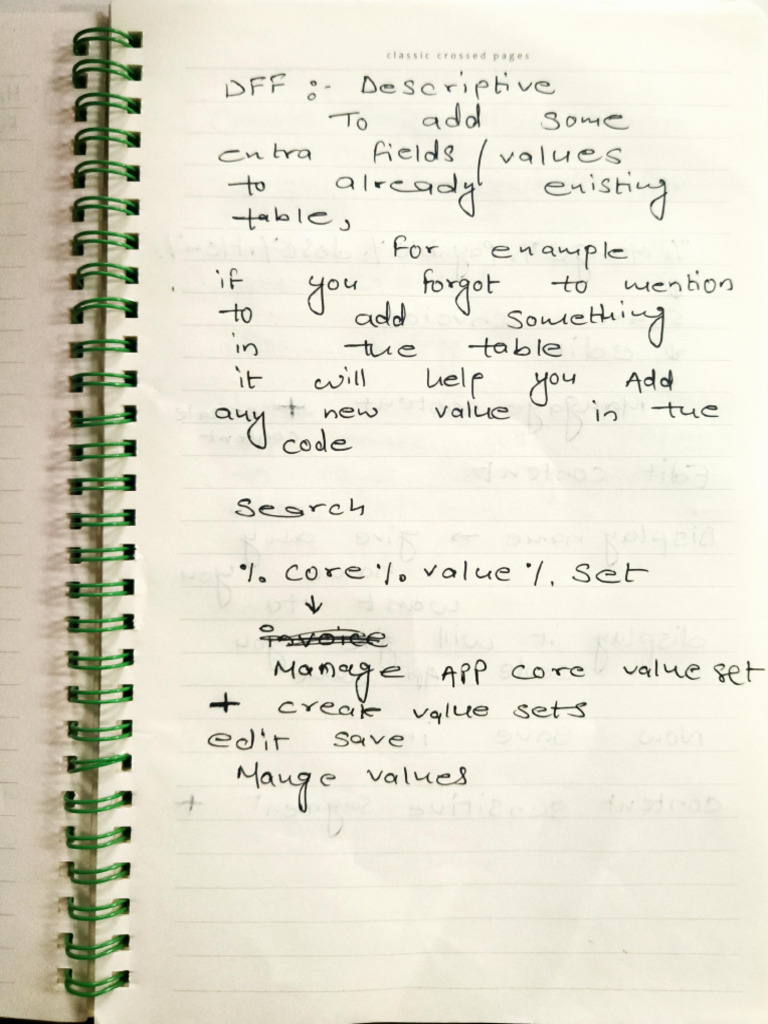 classic crossed pages
DFF :- Descriptive
To add some
entra fields / values
to already enisting
table,
for enample
if you forgot to mention
to add something
in the table
it will help you Add
any + new value in the
code
Search
%. core %. value %. set
↓
invoice
Mamage APP core value set
+ creak value sets
edit save
Mange values